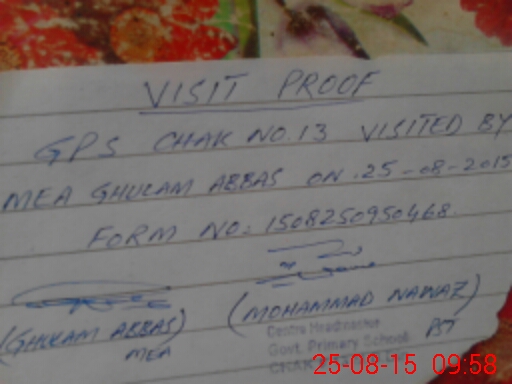 VISIT PROOF
GPS CHAK NO.13 VISITED BY
MEA GHULAM ABBAS ON .25-08-2015
FORM NO: 1508250950468.
(GHULAM ABBAS)
MEA
(MOHAMMAD NAWAZ)
PST
Centre Headmaster
Govt. Primary School
CHAK
25-08-15 09:58